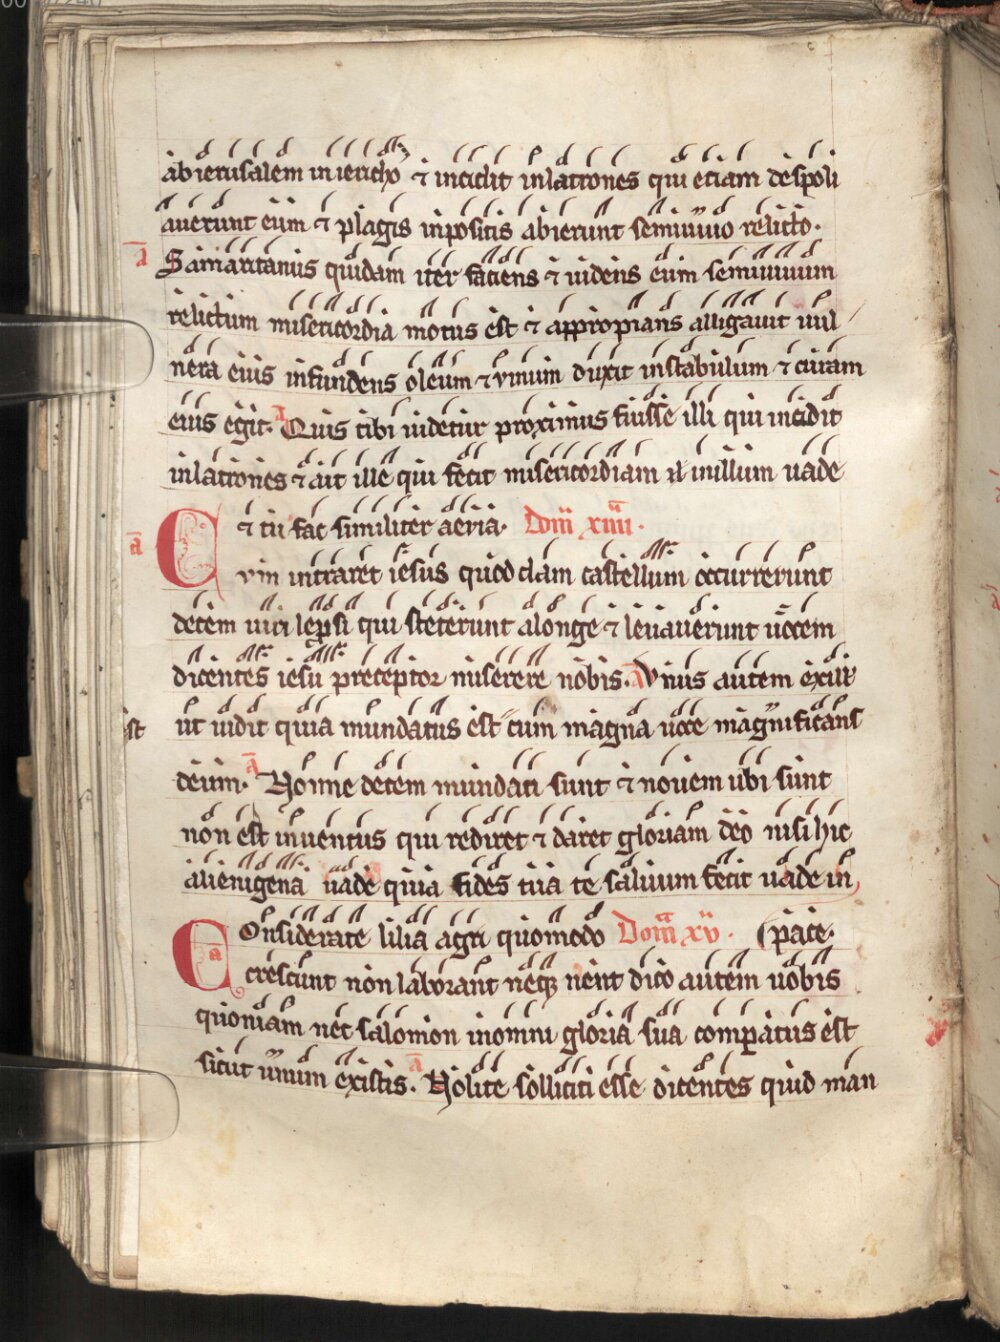 ab ierusalem in iericho ⁊ incidit inlatrones qui etiam despoli
auerunt eum ⁊ plagis inpositis abierunt semiuiuo relicto.
a Samaritanus quidam iter faciens ⁊ uidens eum semiuiuum
relictum misericordia motus est ⁊ appropians alligauit uul
nera eius infundens oleum ⁊ vinum duxit instabulum ⁊ curam
eius egit. a Quis tibi uidetur proximus fuisse illi qui incidit
inlatrones ⁊ ait ille qui fecit misericordiam in illum uade
⁊ tu fac similiter aeuia. Dom xiiii.
a Cvm intraret iesus quoddam castellum occurrerunt
decem uiri leprsi qui steterunt alonge ⁊ leuauerunt uocem
dicentes iesu preceptor miserere nobis. a Vnus autem ex ill
est ut uidit quia mundatus est cum magna uoce magnificans
deum. a Nonne decem mundati sunt ⁊ nouem ubi sunt
non est inuentus qui rediret ⁊ daret gloriam deo nisi hic
alienigena uade quia fides tua te saluum fecit uade in
Considerate lilia agri quomodo Dom xv. pace.
a crescunt non laborant neqꝫ nent dico autem uobis
quoniam nec salomon inomni gloria sua coꝑatus est
sicut unum existis. a Nolite solliciti esse dicentes quid man